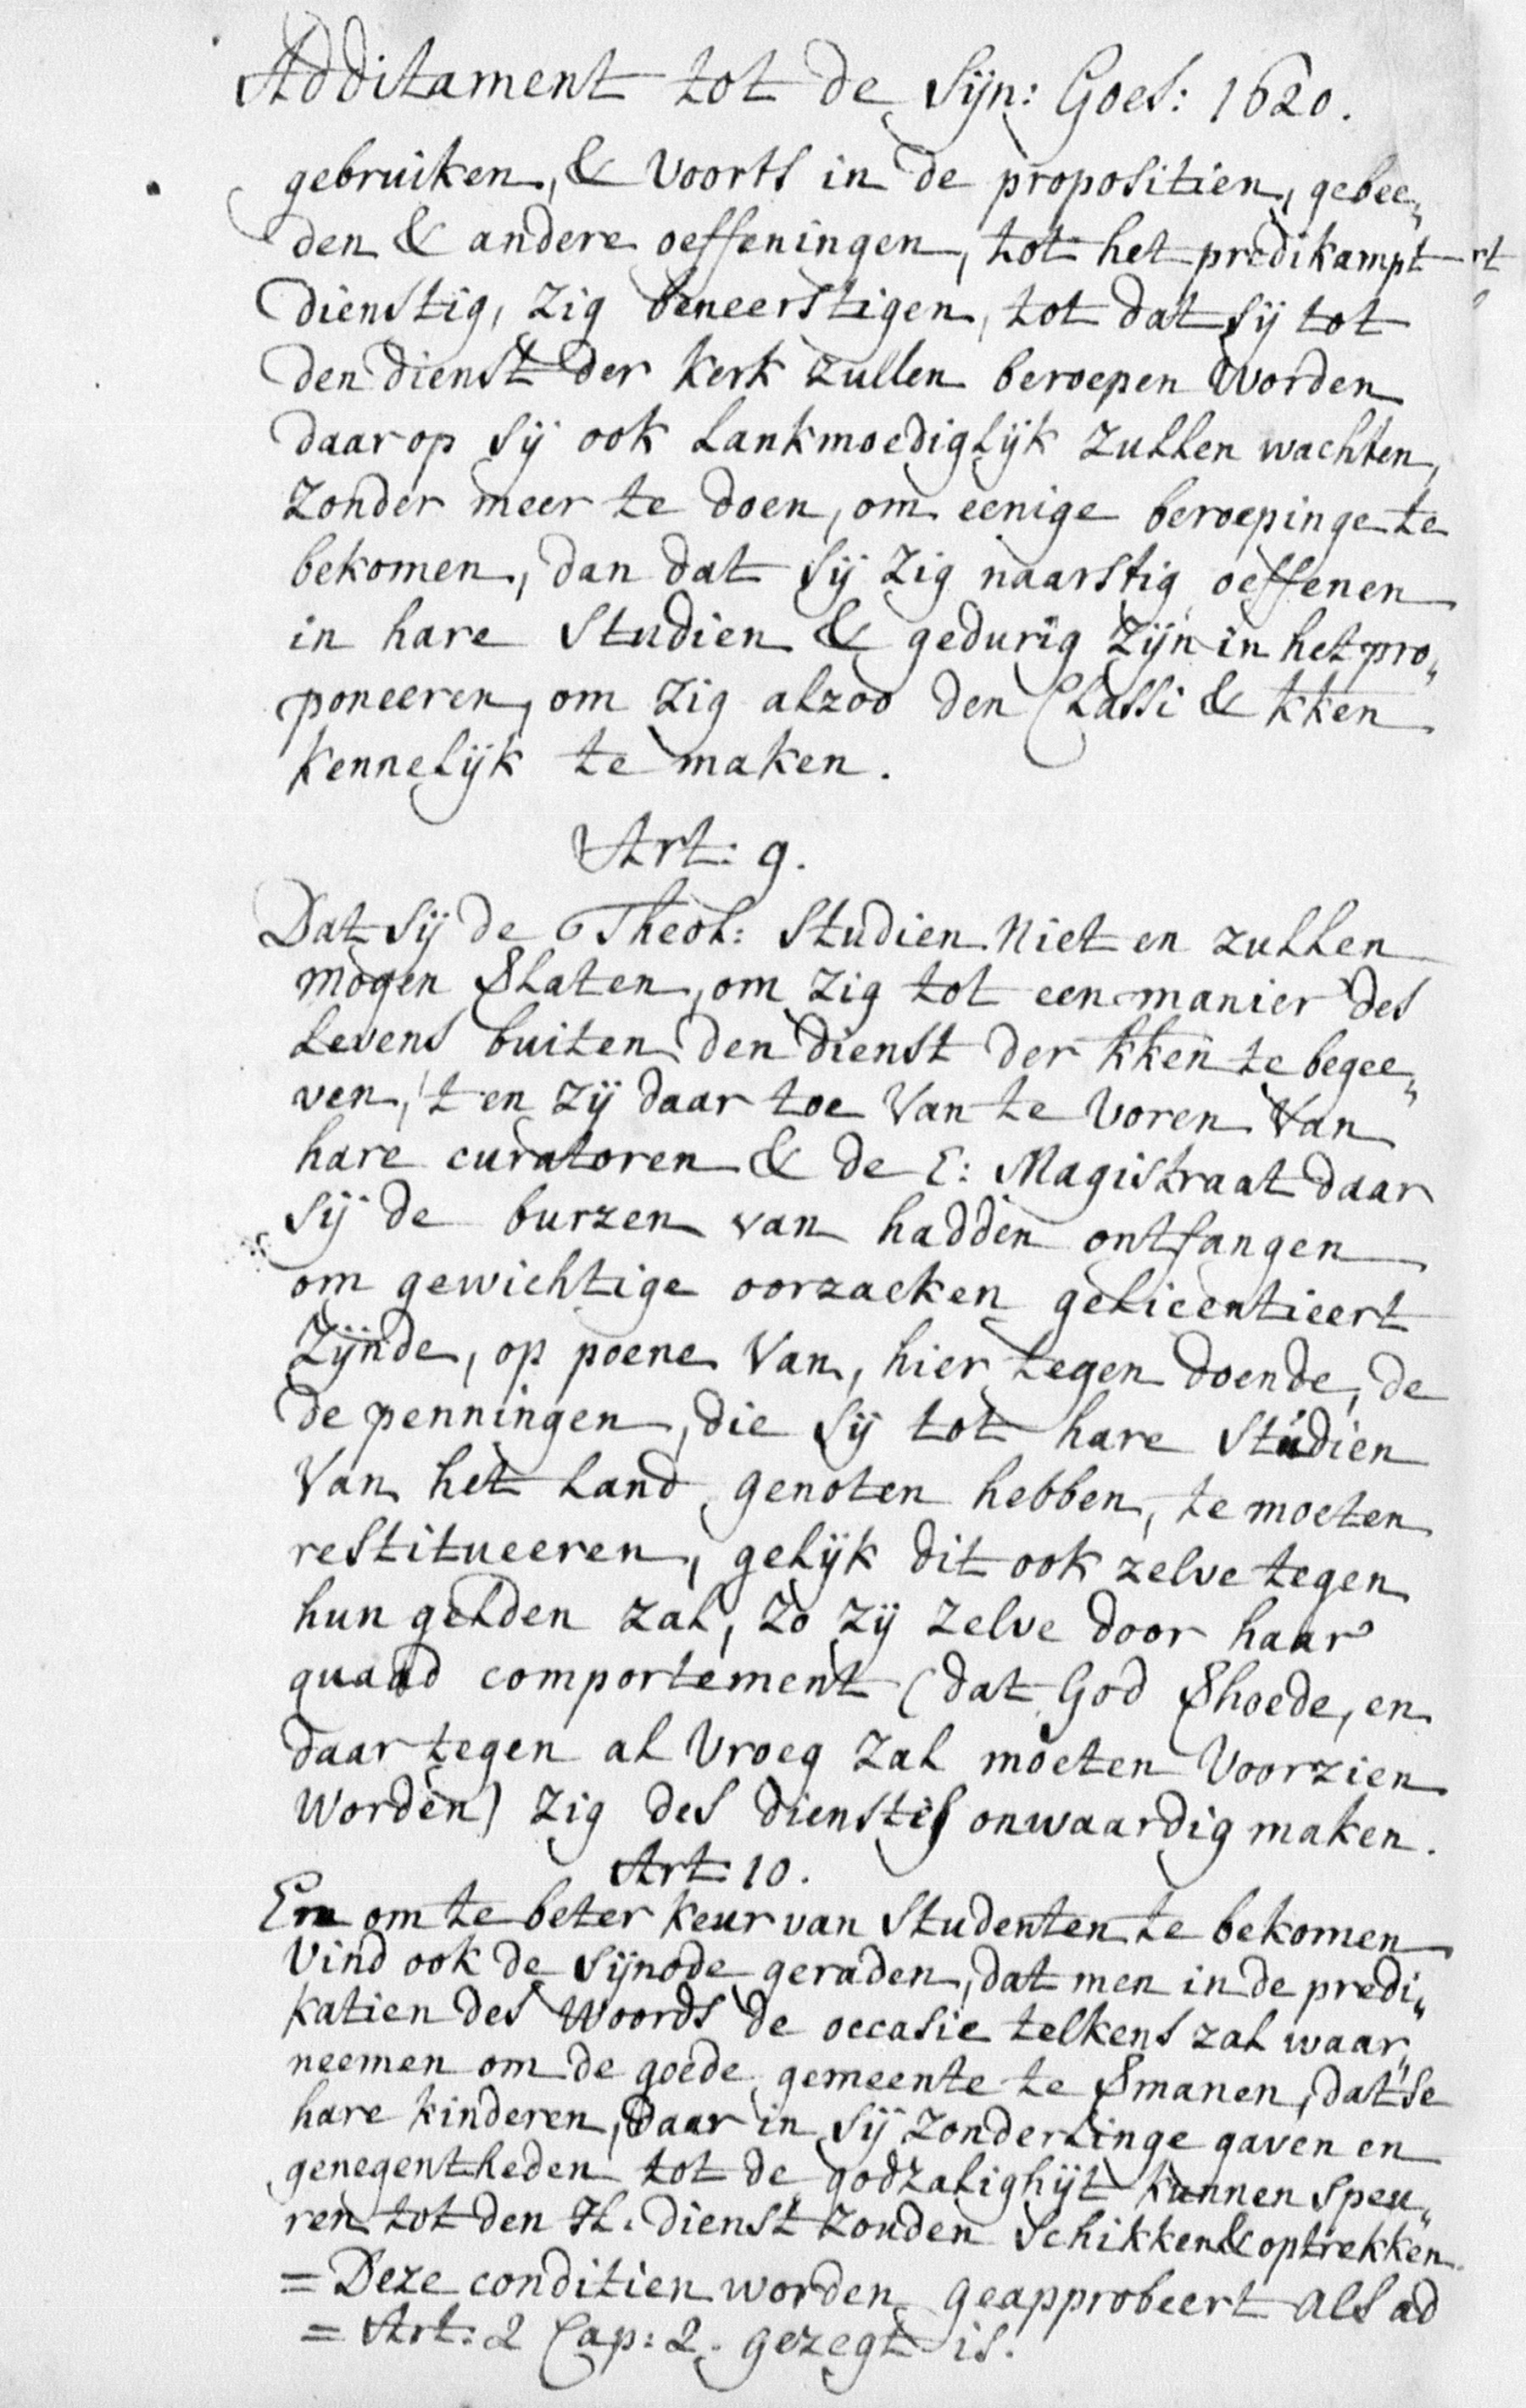 Additament tot de Sijn: Goes: 1620.
gebruiken, & voorts in de propositien, gebee„
den & andere oeffeningen, tot het predikampt
dienstig, zig beneerstigen, tot dat sij tot
den dienst der kerk zullen beroepen worden
daar op sij ook lankmoediglijk zullen wachten,
zonder meer te doen, om eenige beroepinge te
bekomen, dan dat sij zig naarstig oeffenen
in hare studien & gedurig zijn in het pro„
poneeren, om zig alzoo den Classi & kken
kennelijk te maken.
Art: 9.
Dat sij de Theol: studien niet en zullen
mogen Slaten, om zig tot een manier des
levens buiten den dienst der kken te begee„
ven, 't en zij daar toe van te voren van
hare curatoren & de E: Magistraat daar
sij de burzen van hadden ontfangen
om gewichtige oorzaeken gelicentieert
zijnde, op poene van, hier tegen doende, de
de penningen, die sij tot hare studien
van het land genoten hebben, te moeten
restitueeren, gelijk dit ook zelve tegen
hun gelden zal, zo zij zelve door haar
quaad comportement (dat God Shoede, en
daar tegen al vroeg zal moeten voorzien
worden) zig des dienstes onwaardig maken.
Art: 10.
En om te beter keur van studenten te bekomen
vind ook de sijnode geraden, dat men in de predi„
katien des woords de occasie telkens zal waar„
neemen om de goede gemeente te Smanen, dat se
hare kinderen, daar in sij zonderlinge gaven en
genegentheden tot de godzalighijt kunnen speu„
ren tot den H. dienst zouden schikken & optrekken
= Deze conditien worden geapprobeert als ad
= Art: 2 Cap: 2. gezegt is.